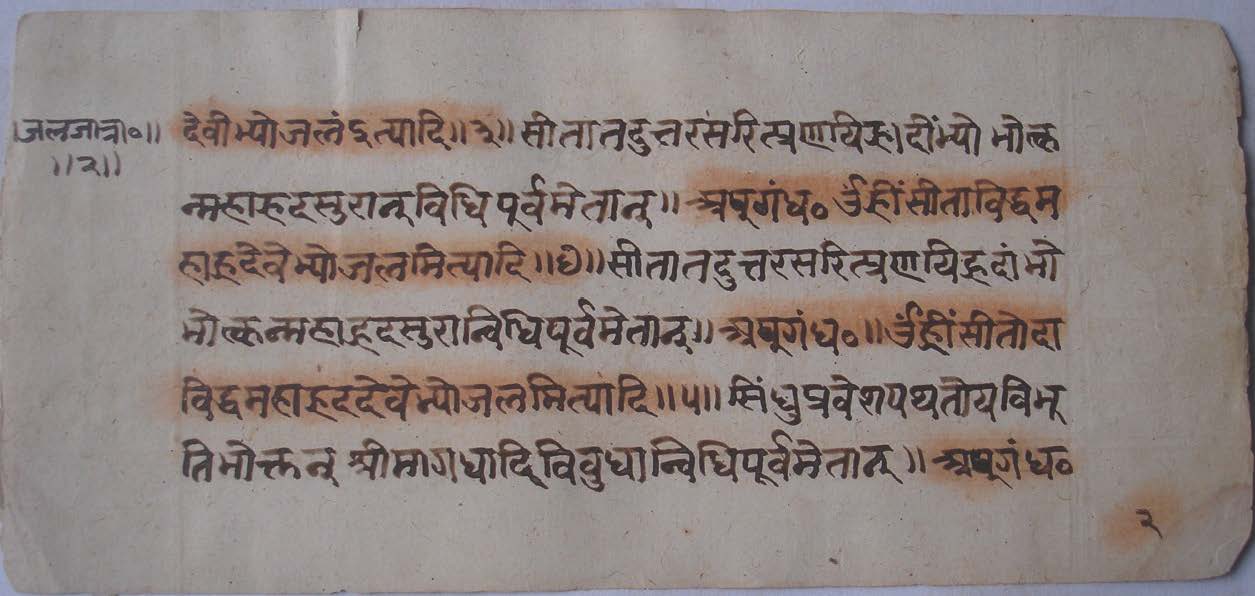 ।जलजात्रा०॥
॥२॥
देवीभ्योजलंइत्यादि॥३॥ सीतातदुत्तरसरित्प्रणयिह्रादींभ्यो भोत्कृ
न्महाह्रदसुरान् विधिपूर्वमेतान्॥ अघुगंध० ॐह्रींसीताविद्धम
हाह्रदेवेभ्योजलमित्यादि॥४॥ सीतातदुत्तरसरित्प्रणयिह्रदांभो
भोत्कृन्महाह्रदसुरान्विधिपूर्वमेतान्॥ अघुगंध०॥ ॐह्रींसीतोदा
विद्धमहाह्रददेवेभ्योजलमित्यादि॥५॥ सिंधुप्रवेशपथतोयविभू
तिभोक्तृन् श्रीमागधादिविबुधान्विधिपूर्वमेतान्॥ अघुगंध०
२